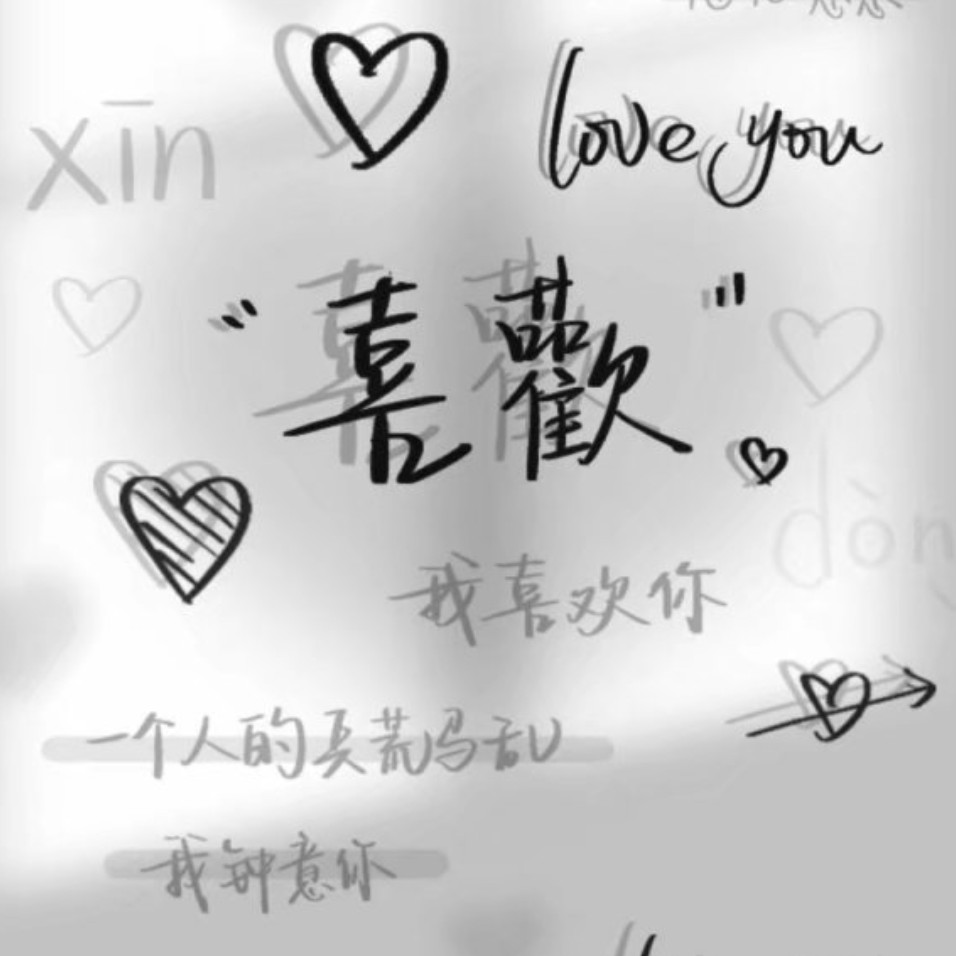 love you
xīn
"喜歡"
dòn
我喜欢你
一个人的兵荒马乱
我钟意你